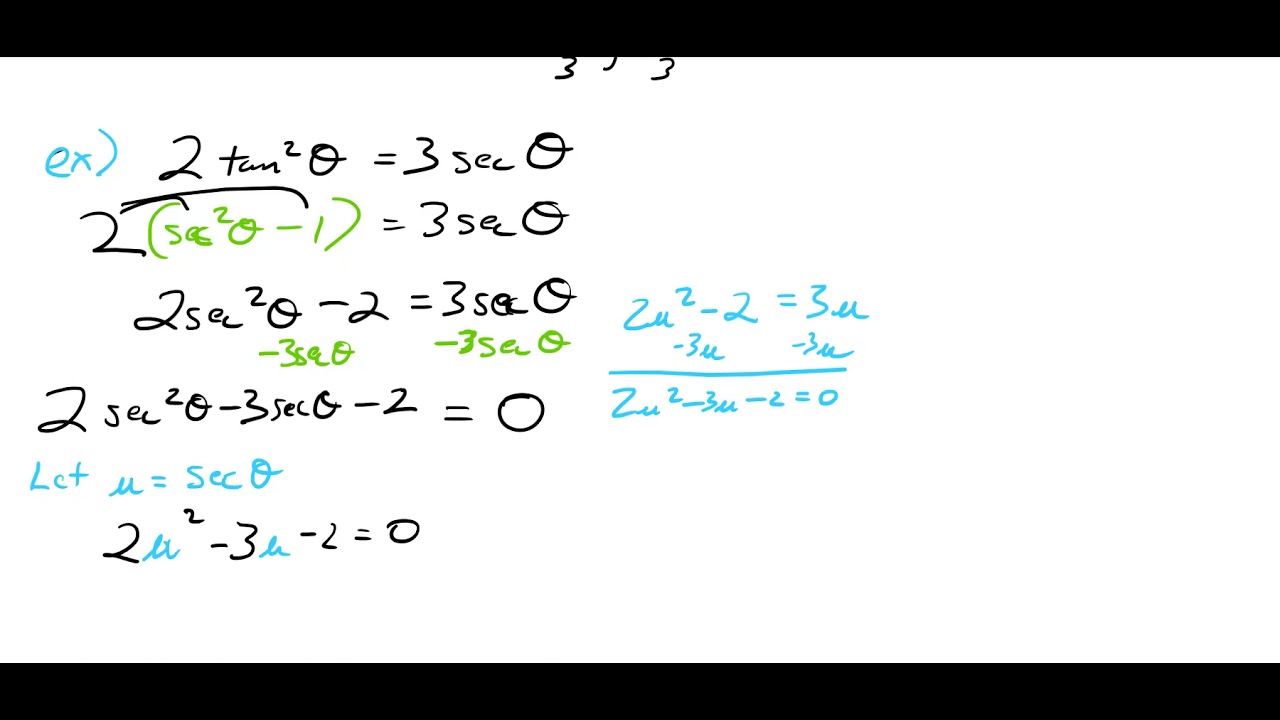 3 , 3
ex) 2 tan²θ = 3 sec θ
2 (sec²θ - 1) = 3 sec θ
2sec²θ - 2 = 3sec θ
-3secθ -3sec θ
2 sec²θ - 3secθ - 2 = 0
Let u = sec θ
2u² - 3u - 2 = 0
2u² - 2 = 3u
-3u -3u
2u² - 3u - 2 = 0